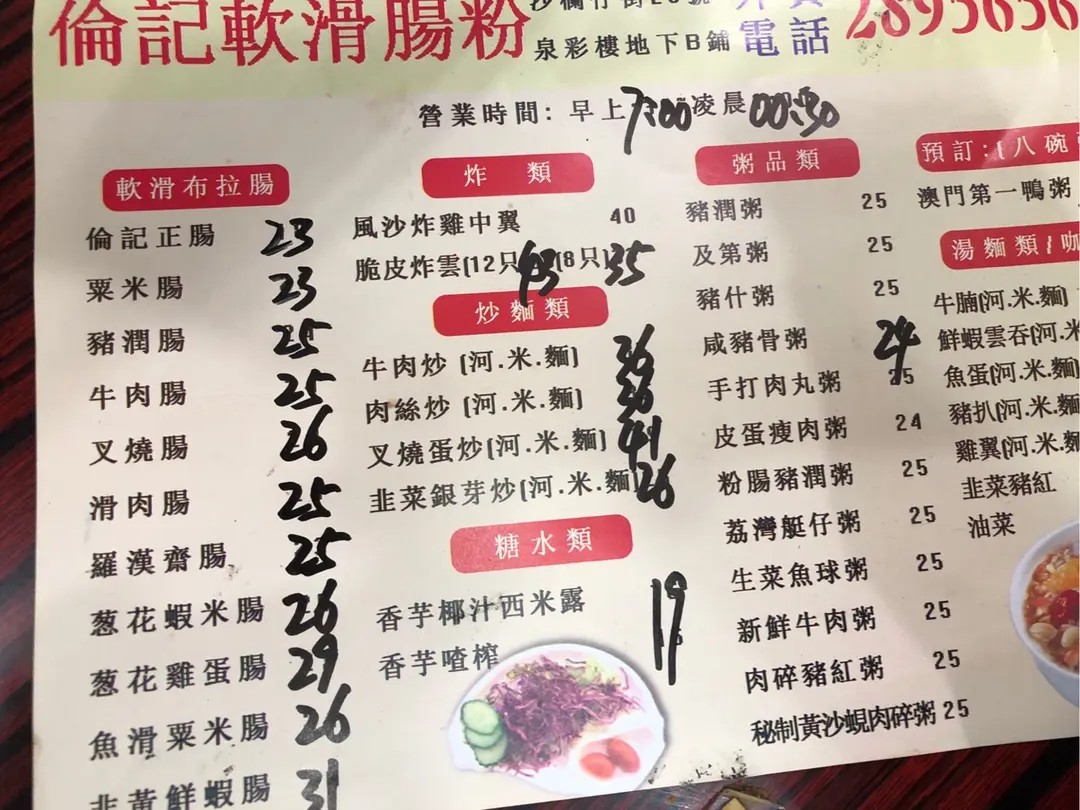 倫記軟滑腸粉
泉彩樓地下B鋪
電話
營業時間: 早上7:00凌晨00:30
軟滑布拉腸
倫記正腸 23
粟米腸 23
豬潤腸 25
牛肉腸 25
叉燒腸 26
滑肉腸 25
羅漢齋腸 25
葱花蝦米腸 26
葱花雞蛋腸 29
魚滑粟米腸 26
韭黃鮮蝦腸 31
炸類
風沙炸雞中翼 40
脆皮炸雲(12只) 43 (8只) 35
炒麵類
牛肉炒 (河.米.麵) 36
肉絲炒 (河.米.麵) 36
叉燒蛋炒(河.米.麵) 41
韭菜銀芽炒(河.米.麵) 26
糖水類
香芋椰汁西米露 19
香芋喳榨
粥品類
豬潤粥 25
及第粥 25
豬什粥 25
咸豬骨粥 24
手打肉丸粥 25
皮蛋瘦肉粥 24
粉腸豬潤粥 25
荔灣艇仔粥 25
生菜魚球粥 25
新鮮牛肉粥 25
肉碎豬紅粥 25
秘制黃沙蜆肉碎粥 25
預訂:(八碗
澳門第一鴨粥
湯麵類/咖
牛腩(河.米.麵)
鮮蝦雲吞(河.米
魚蛋(河.米.麵)
豬扒(河.米.麵
雞翼(河.米.麵
韭菜豬紅
油菜